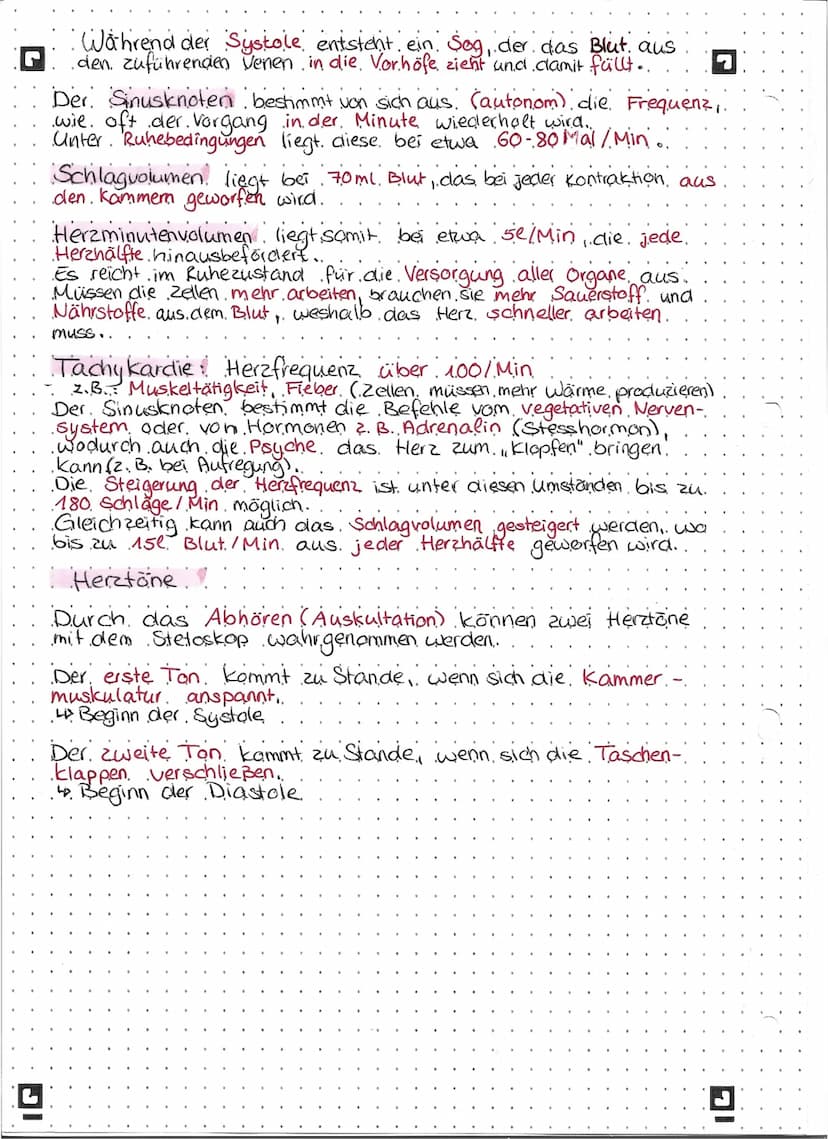 Während der Systole entsteht ein Sog, der das Blut aus
den zuführenden Venen in die Vorhöfe zieht und damit füllt.
Der Sinusknoten bestimmt von sich aus (autonom) die Frequenz,
wie oft der Vorgang in der Minute wiederholt wird.
Unter Ruhebedingungen liegt diese bei etwa 60-80 Mal/Min.
Schlagvolumen liegt bei 70ml Blut, das bei jeder Kontraktion aus
den Kammern geworfen wird.
Herzminutenvolumen liegt somit bei etwa 5l/Min, die jede
Herzhälfte hinausbefördert.
Es reicht im Ruhezustand für die Versorgung aller Organe aus.
Müssen die Zellen mehr arbeiten, brauchen sie mehr Sauerstoff und
Nährstoffe aus dem Blut, weshalb das Herz schneller arbeiten
muss.
Tachykardie: Herzfrequenz über 100/Min
- z.B.: Muskeltätigkeit, Fieber (Zellen müssen mehr Wärme produzieren)
Der Sinusknoten bestimmt die Befehle vom vegetativen Nerven-
system oder von Hormonen z.B. Adrenalin (Stesshormon),
wodurch auch die Psyche das Herz zum „Klopfen" bringen
kann (z.B. bei Aufregung).
Die Steigerung der Herzfrequenz ist unter diesen Umständen bis zu
180 Schläge/Min möglich.
Gleichzeitig kann auch das Schlagvolumen gesteigert werden, wo
bis zu 15l Blut/Min aus jeder Herzhälfte geworfen wird.
Herztöne
Durch das Abhören (Auskultation) können zwei Herztöne
mit dem Stetoskop wahrgenommen werden.
Der erste Ton kommt zu Stande, wenn sich die Kammer-
muskulatur anspannt.
↳ Beginn der Systole
Der zweite Ton kommt zu Stande, wenn sich die Taschen-
klappen verschließen.
↳ Beginn der Diastole